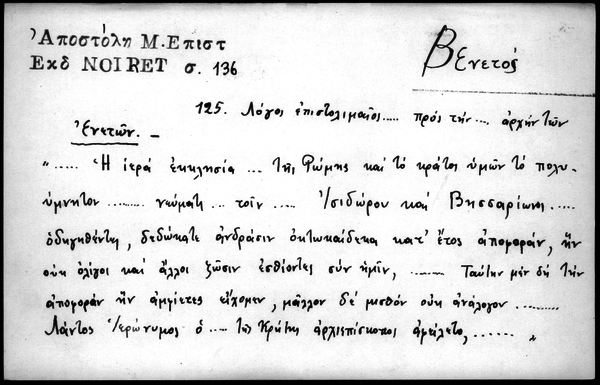 Ἀποστόλη Μ. Επιστ
Εκδ NOIRET σ. 136
Βενετός
125. Λόγος ἐπιστολιμαῖος ..... πρός τήν .... ἀρχήν τῶν
Ἐνετῶν. –
"..... Ἡ ἱερά ἐκκλησία ... τῆς Ῥώμης καί τό κράτος ὑμῶν τό πολυ-
ύμνητον ......... γνώμαις .. τοῖν .... Ἰσιδώρου καί Βησσαρίωνος .....
ὁδηγηθέντες, δεδώκατε ἀνδράσιν ὀκτωκαίδεκα κατ' ἔτος ἀποφοράν, ἥν
οὐκ ὀλίγοι καί ἄλλοι ζῶσιν ἐσθίοντες σύν ἡμῖν, ........ Ταύτην μέν δή τήν
ἀποφοράν ἥν ἀμφιετες εἴχομεν, μᾶλλον δέ μισθόν οὐκ ἀνάλογον ..........
Λάντος Ἱερώνυμος ὁ .... τῆς Κρήτης ἀρχιεπίσκοπος ἀφείλετο, ...... "